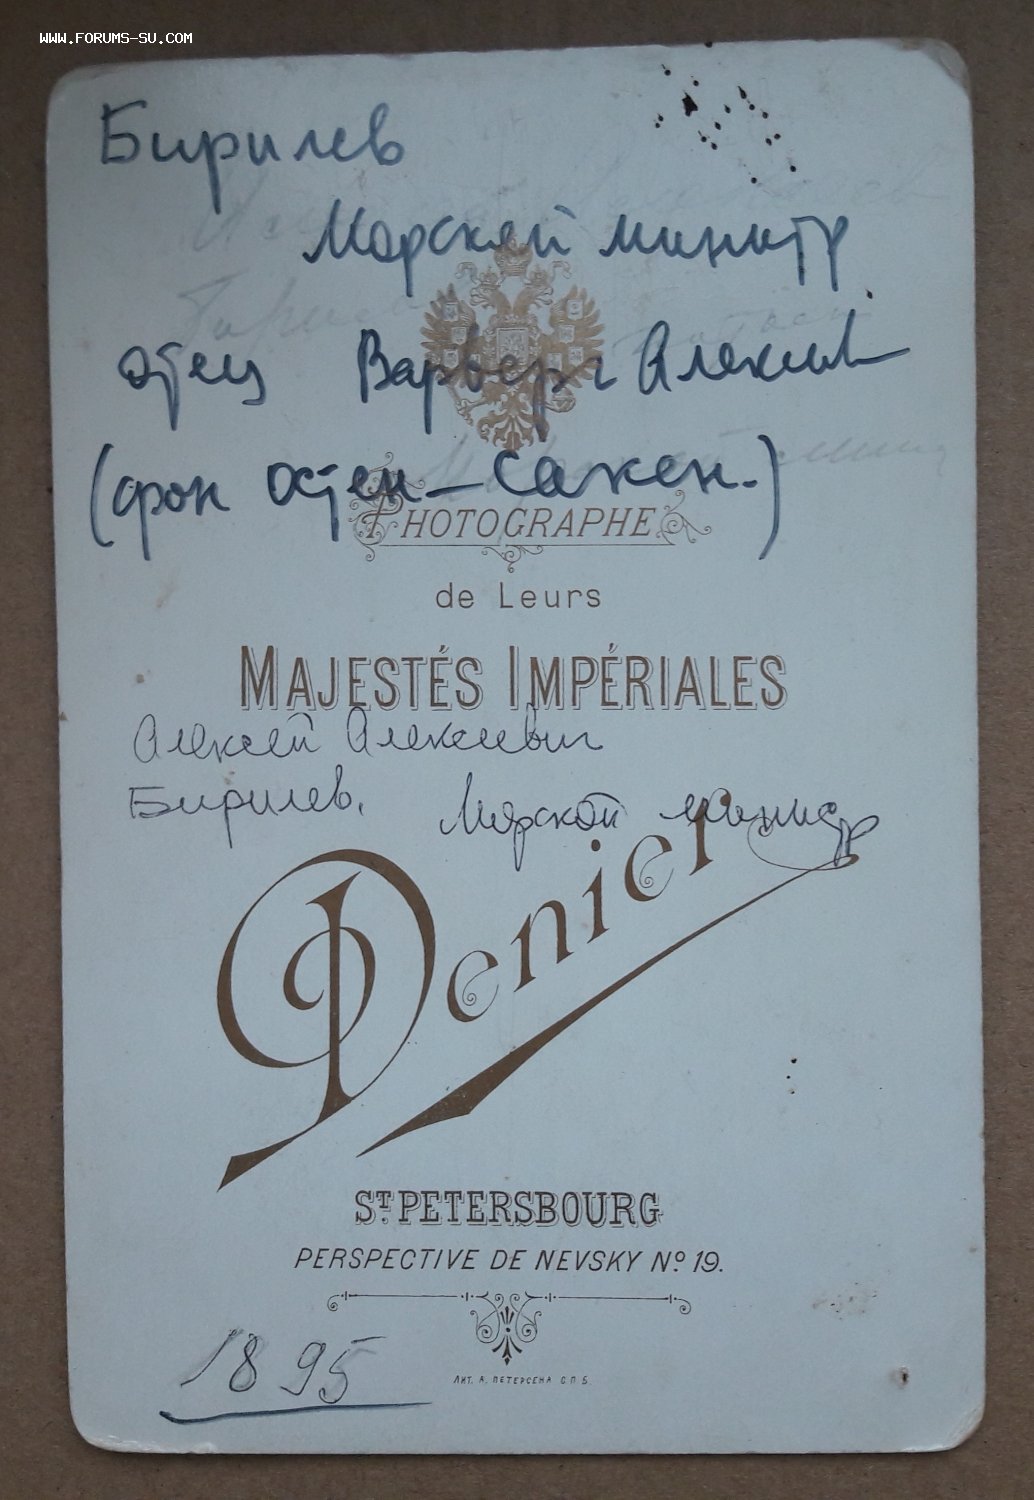 WWW.FORUMS-SU.COM
Бирилев
Морской министр
отец Варвары Алексеев
(фон Остен-Сакен.)
PHOTOGRAPHE
de Leurs
MAJESTÉS IMPÉRIALES
Алексей Алексеевич
Бирилев. Морской министр
Denier
ST. PETERSBOURG
PERSPECTIVE DE NEVSKY No 19.
ЛИТ. А. ПЕТЕРСЕНА С П Б.
1895